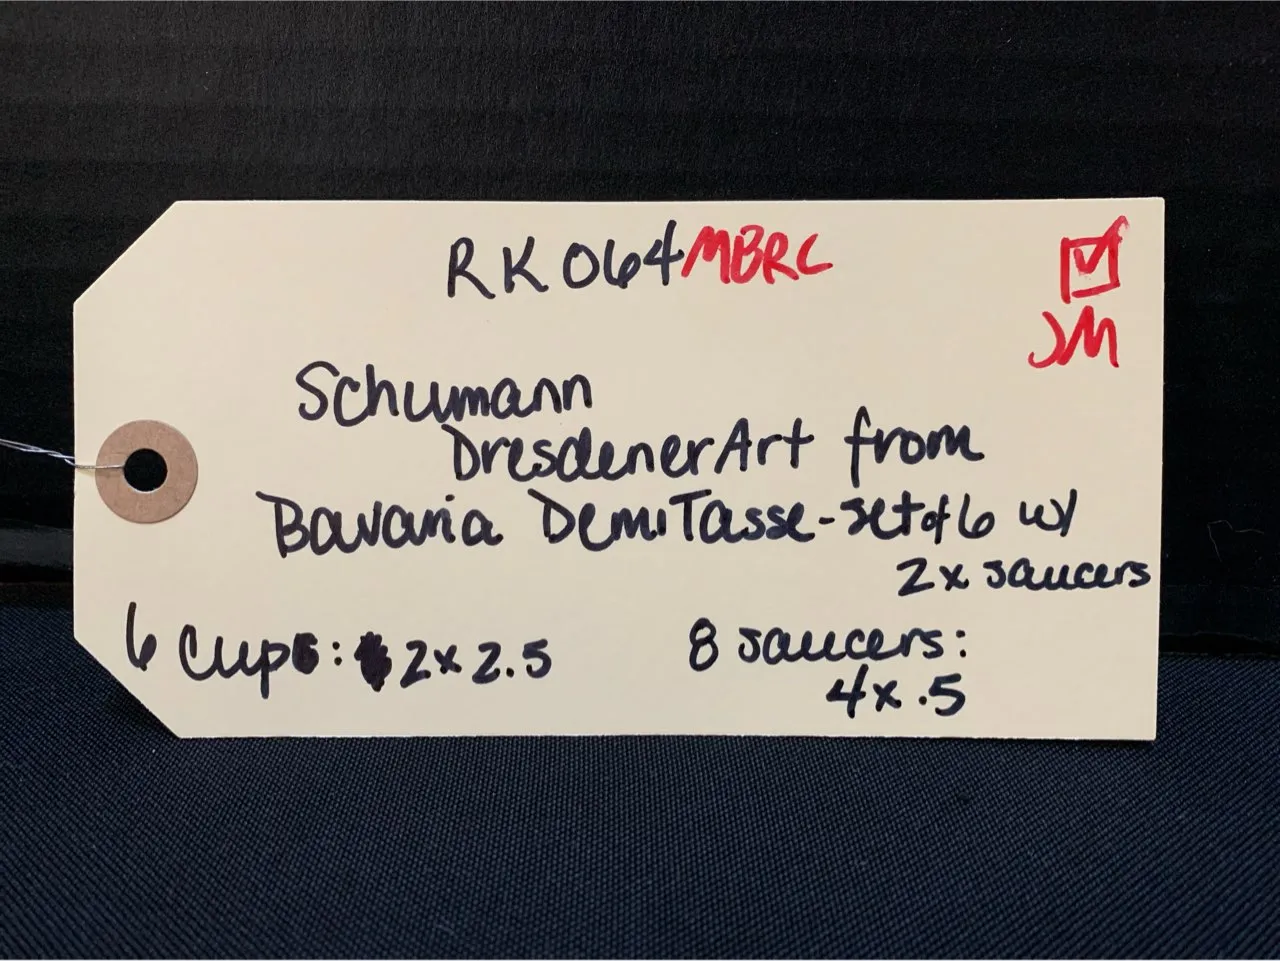 RK064MBRC
JM
Schumann
Dresdener Art from
Bavaria DemiTasse-set of 6 w/
2x saucers
6 Cups: 2x2.5
8 saucers:
4x.5